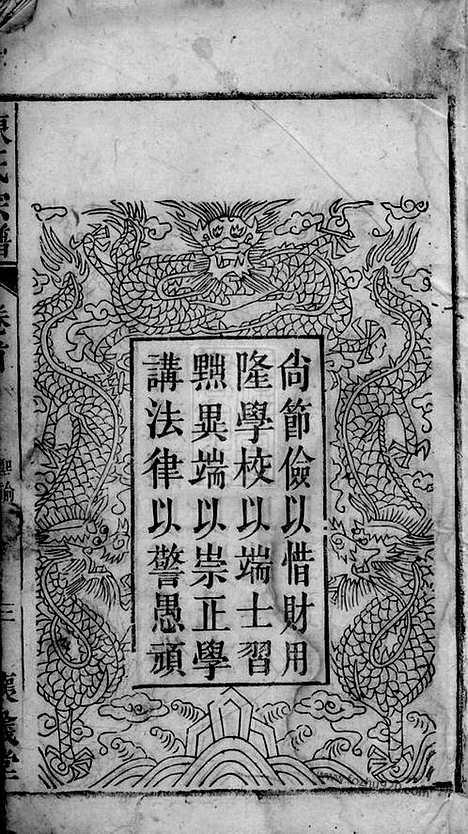 尙節儉以惜財用
隆學校以端士習
黜異端以崇正學
講法律以警愚頑
氏宗譜
卷首
聖諭
三